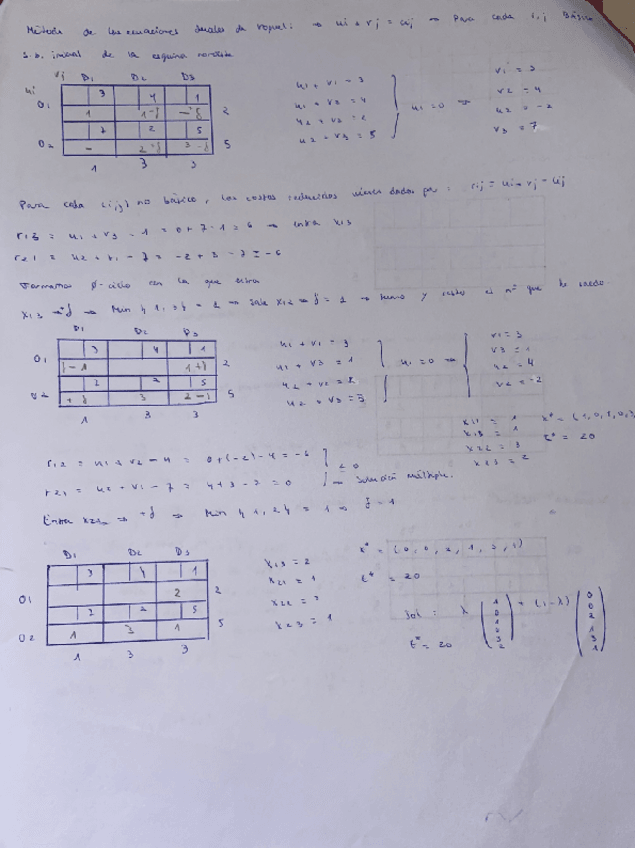 Método de las ecuaciones duales de Vogel: → ui + vj = cij → Para cada i,j básica
s.b. inicial de la esquina noroeste
ui vj D1 D2 D3
3 4 1
O1 1 1-θ 2
7 2 5
O2 - 3-θ 5
1 3 3
u1 + v1 = 3
u1 + v2 = 4
u2 + v2 = 2
u2 + v3 = 5
u1 = 0 →
v1 = 3
v2 = 4
u2 = -2
v3 = 7
Para cada (i,j) no básico, los costos reducidos vienen dados por: rij = ui + vj - cij
r13 = u1 + v3 - 1 = 0 + 7 - 1 = 6 → entra x13
r21 = u2 + v1 - 7 = -2 + 3 - 7 = -6
Formamos θ-ciclo con la que entra
x13 → θ → Min 1, = 1 → sale x12 → θ = 1 → sumo y resto el nº que ha salido.
D1 D2 D3
3 4 1
O1 1+θ 2
2 5
+θ 3 2-θ 5
1 3 3
u1 + v1 = 3
u1 + v3 = 1
u2 + v2 = 2
u2 + v3 = 5
u1 = 0 →
v1 = 3
v3 = 1
u2 = 4
v2 = -2
x11 = 1
x13 = 1
x22 = 3
x23 = 2
t* = 20
r12 = u1 + v2 - 4 = 0 + (-2) - 4 = -6
r21 = u2 + v1 - 7 = 4 + 3 - 7 = 0
≤ 0
→ Solución múltiple.
Entra x21 → θ → Min { 1, 2 } = 1 → θ = 1
D1 D2 D3
3 4 1
O1 2 2
2 5
O2 1 3 1 5
1 3 3
x13 = 2
x21 = 1
x22 = 3
x23 = 1
x* = (0, 0, 2, 1, 3, 1)
t* = 20
Sol: λ (1 0 1 0 3 2) + (1-λ) (0 0 2 1 3 1)
t* = 20